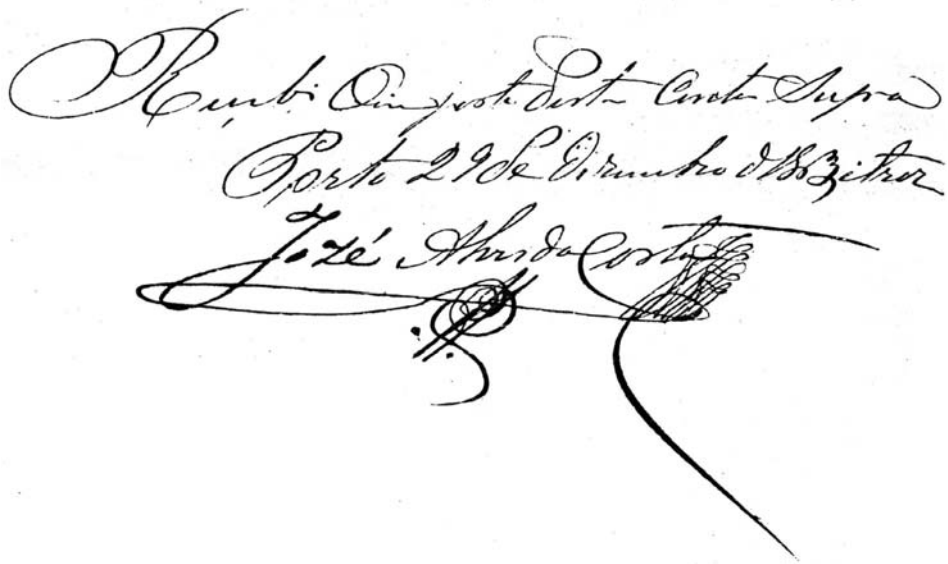 Recebi O importe desta Conta Supra
Porto 29 de Dezembro d
José Alves da Costa